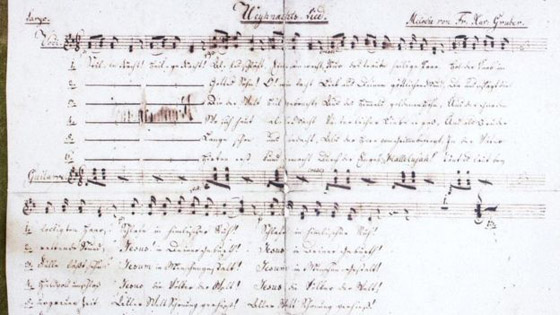 Largo. Weyhnachts-Lied. Melodie von Fr. Xav. Gruber.
Voce
1. Stille Nacht! Heilige Nacht! Alles schläft; Einsam wacht Nur das traute heilige Paar. Holder Knab' im
2. Gottes Sohn! O! wie lacht Lieb' aus Deinem göttlichen Mund, Da uns schlägt die
3. Die der Welt Heil gebracht, Aus des Himmels goldenen Höhn, Uns der Gnaden
4. Wo sich heut alle Macht Väterlicher Liebe ergoß, Und als Bruder
5. Lange schon uns bedacht, Als der Herr vom Grimme befreyt In der Väter
6. Hirten erst kund gemacht Durch der Engel Alleluja! Tönt es laut bey
Guitarre
1. lockigten Haar, Schlafe in himmlischer Ruh! Schlafe in himmlischer Ruh!
2. rettende Stund, Jesus! in deiner Geburt! Jesus! in deiner Geburt!
3. Fülle läßt sehn: Jesum in Menschengestalt! Jesum in Menschengestalt!
4. huldvoll umschloß Jesus die Völker der Welt! Jesus die Völker der Welt!
5. urgrauer Zeit Aller Welt Schonung verhieß! Aller Welt Schonung verhieß!